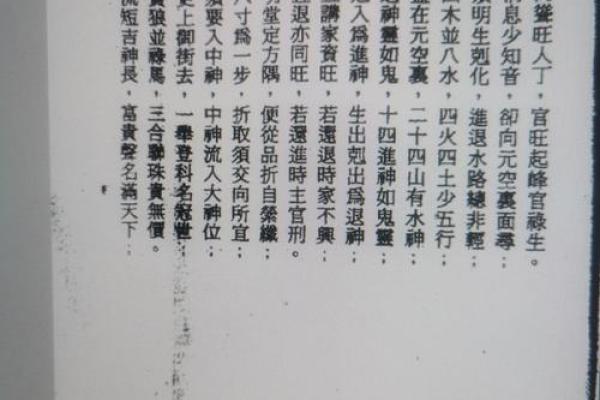 聳旺人丁，官旺起峰官祿生。
息少知音，卻向元空裏面尋：
明生剋化，進退水路總非輕：
木並八水，四火四土少五行：
在元空裏，二十四山有水神：
神靈如鬼，十四進神如鬼靈：
入為進神，生出剋出為退神：
講家資旺，若還退時家不興：
退亦同旺，若還進時主官刑。
堂定方隅，便從品折自縈纖：
寸為一步，折取須交向所宜：
要入中神，中神流入大神位：
上御街去，一舉登科名冠世：
狼並祿馬，三合聯珠貴無價。
短吉神長，富貴聲名滿天下：